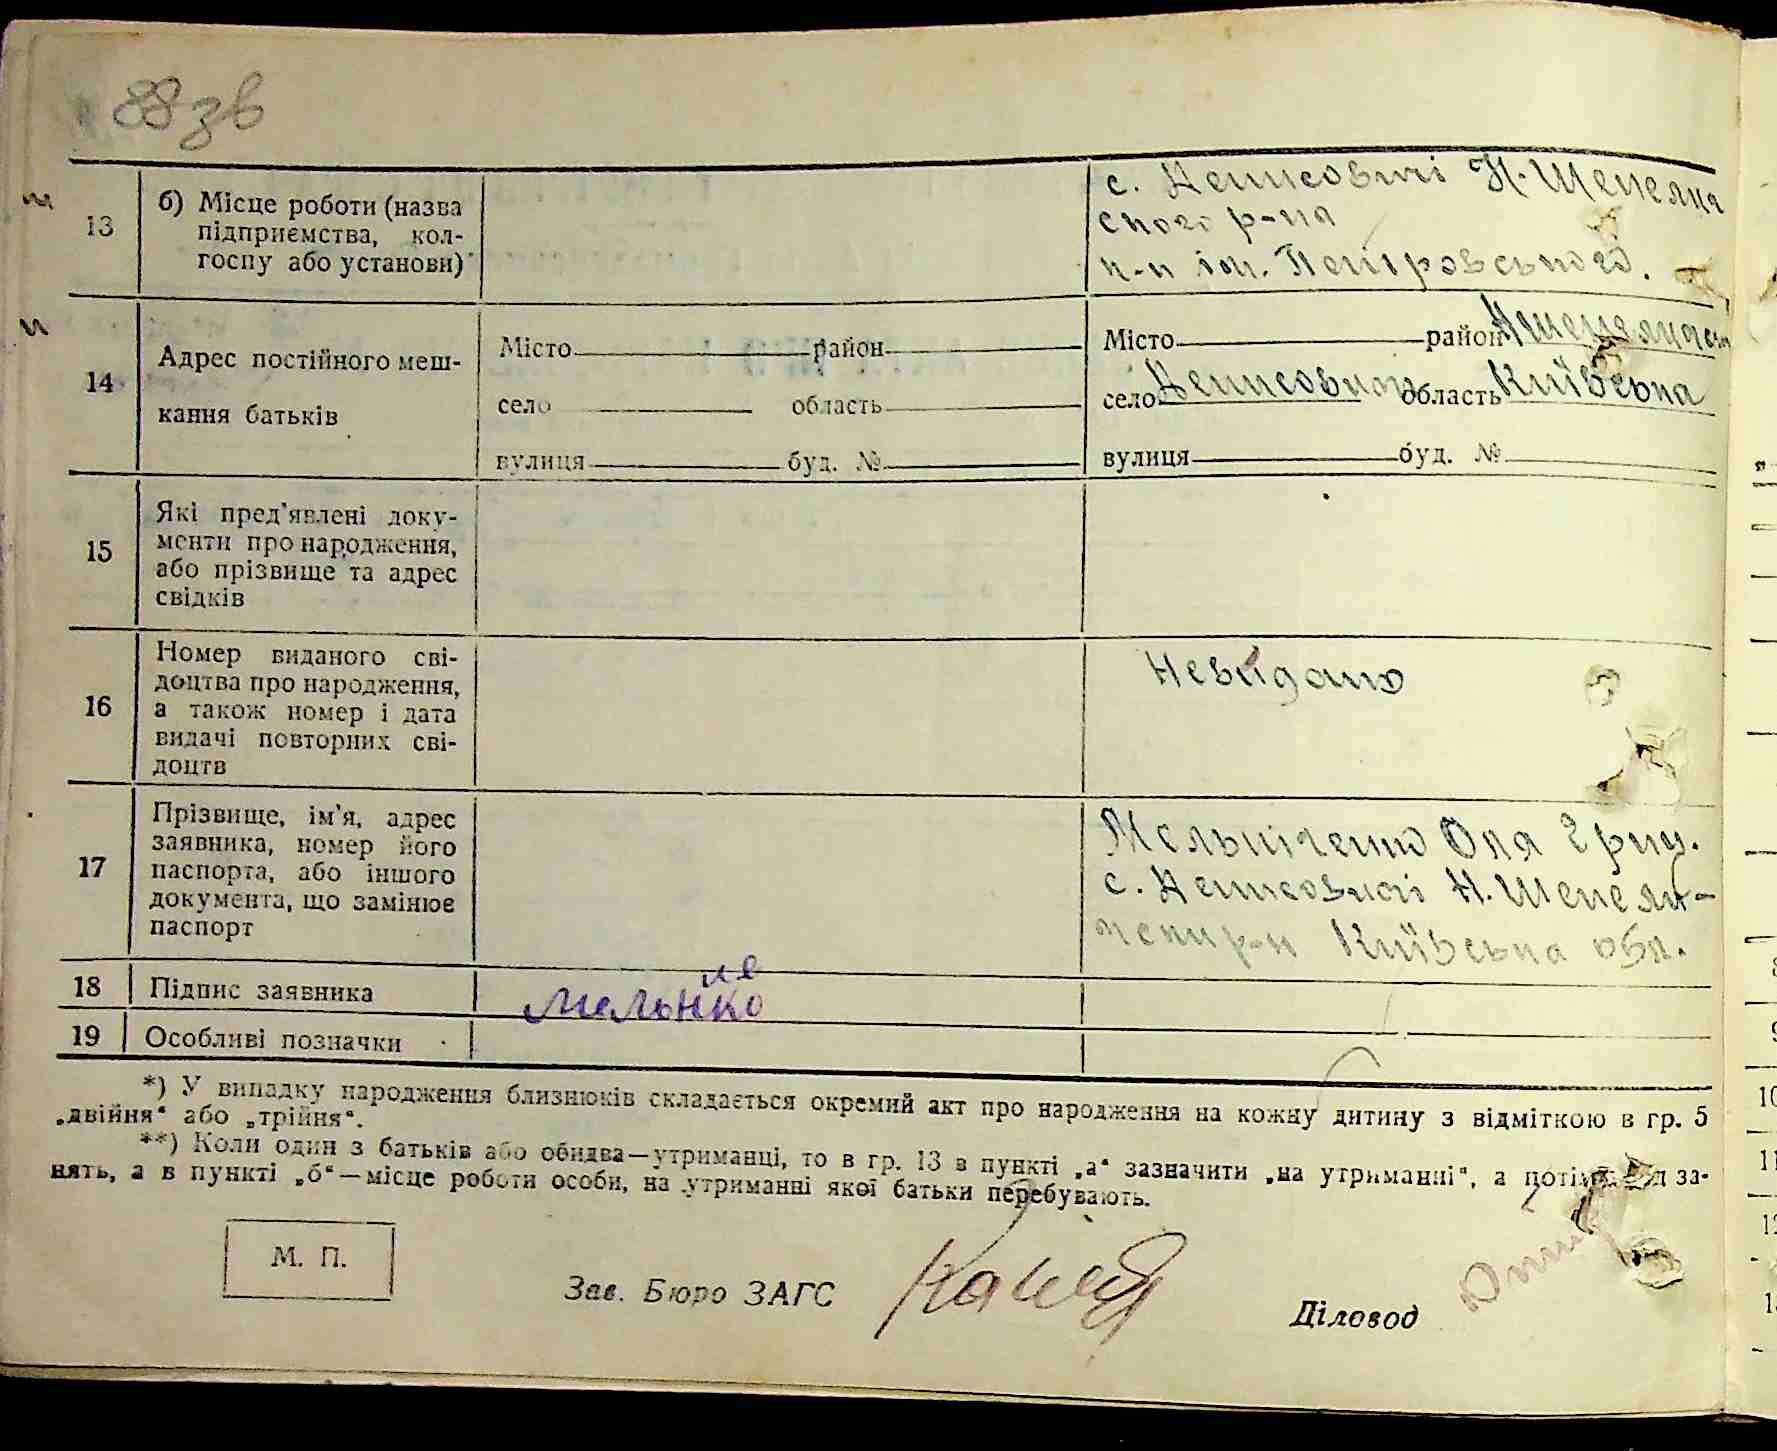 88 зв
13
б) Місце роботи (назва
підприємства, кол-
госпу або установи)
с. Денисовичі Н. Шепелич
ского р-на
к-п ім. Петровського.
14
Адрес постійного меш-
кання батьків
Місто район
село область
вулиця буд. №
Місто район
село область Київська
вулиця буд. №
15
Які пред'явлені доку-
менти про народження,
або прізвище та адрес
свідків
16
Номер виданого сві-
доцтва про народження,
а також номер і дата
видачі повторних сві-
доцтв
Невидано
17
Прізвище, ім'я, адрес
заявника, номер його
паспорта, або іншого
документа, що замінює
паспорт
Мельніченко Оля Гриц.
с. Денисовичі Н. Шепели-
р-н Київська обл.
18 Підпис заявника
19 Особливі позначки
*) У випадку народження близнюків складається окремий акт про народження на кожну дитину з відміткою в гр. 5
„двійня“ або „трійня“.
**) Коли один з батьків або обидва—утриманці, то в гр. 13 в пункті „а“ зазначити „на утриманні“, а потім за-
нять, а в пункті „б“—місце роботи особи, на утриманні якої батьки перебувають.
М. П.
Зав. Бюро ЗАГС
Діловод